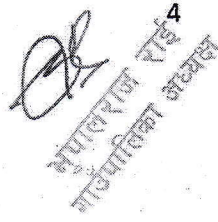 4
भुपालराज राई
गाउँपालिका अध्यक्ष